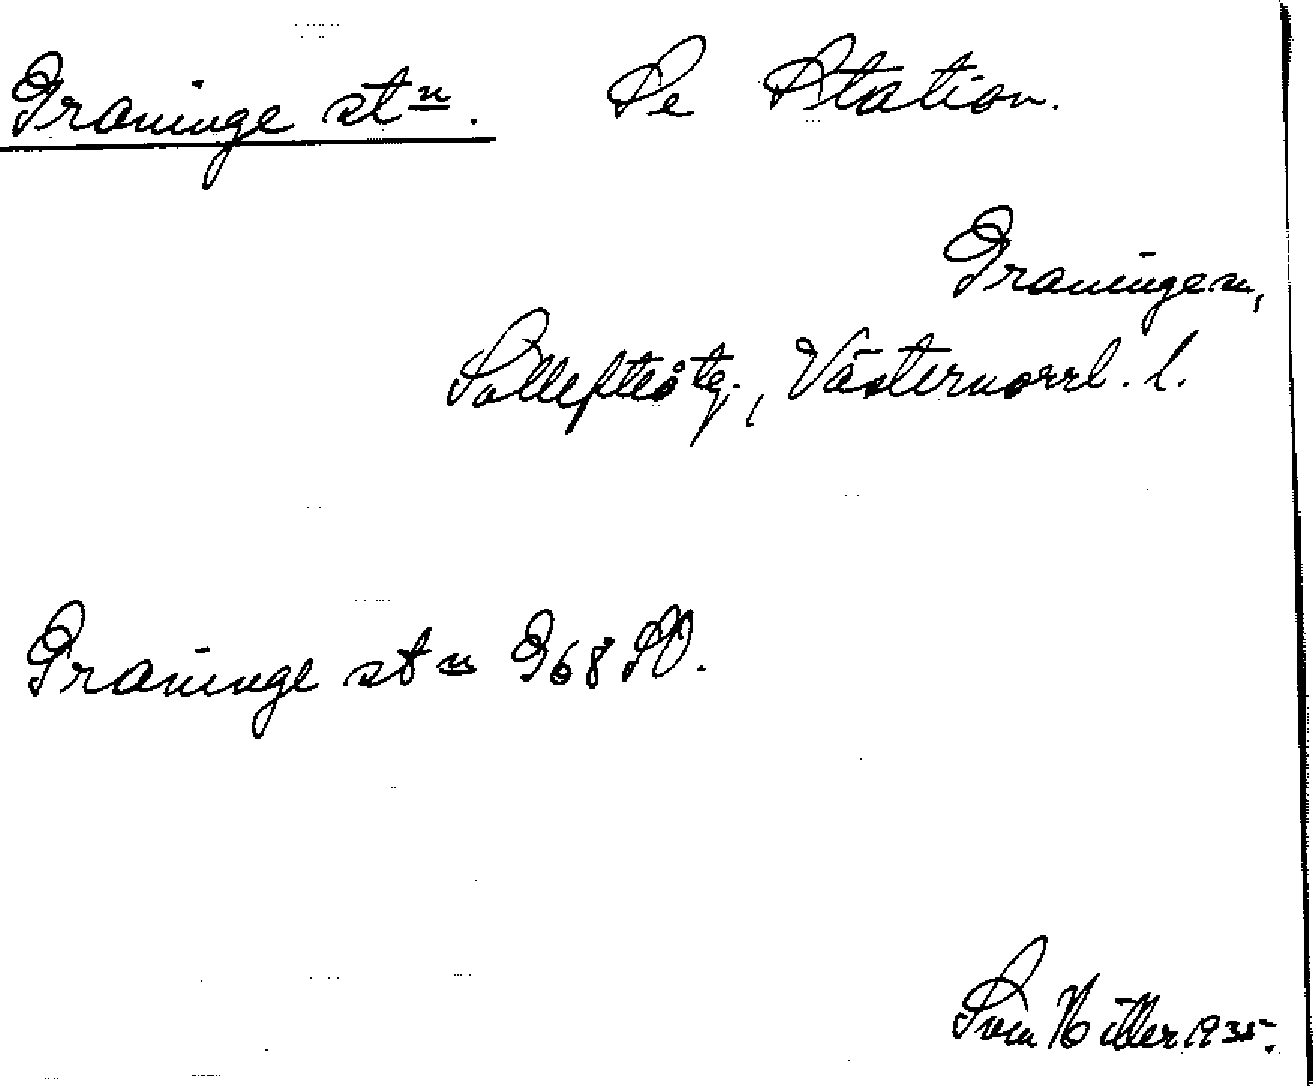 Graninge stn. Se Station.
Graninge sn,
Sollefteå tg., Västernorrl. l.
Graninge stn G68 SV.
Sven Hiller 1935.